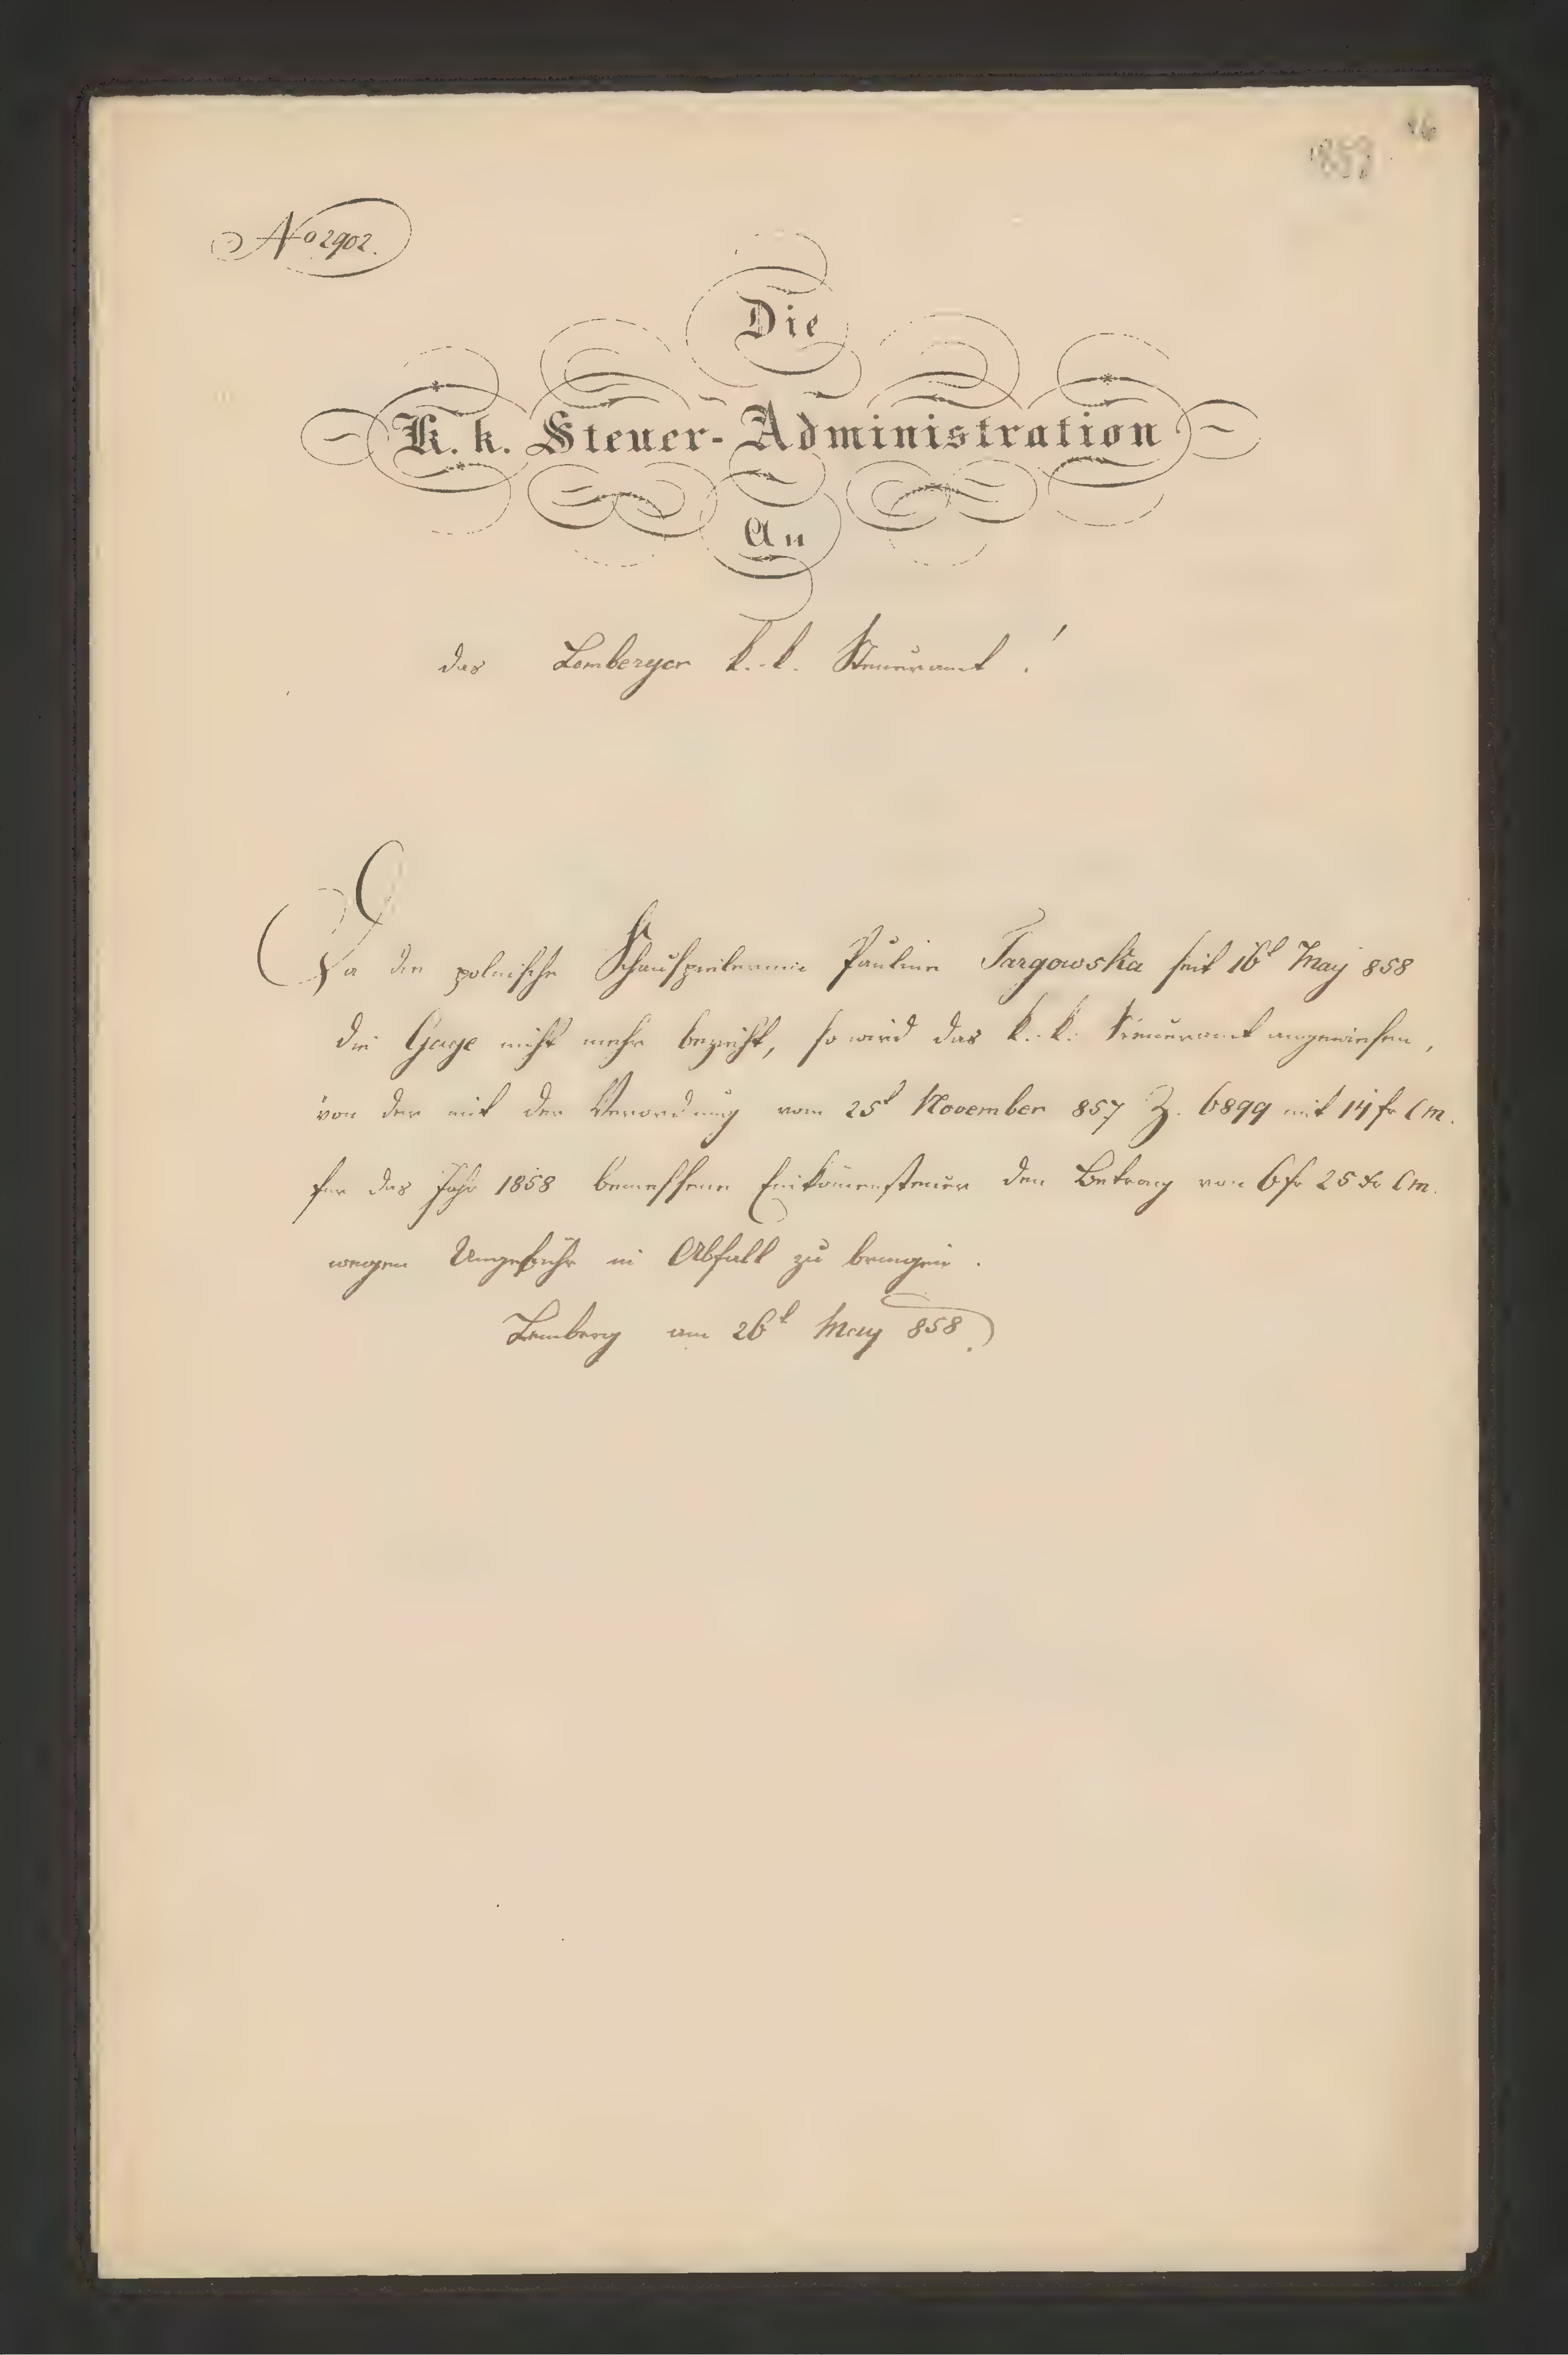 16
1858
No 2902.
Die
K. k. Steuer-Administration
An
das Lemberger k. k. Steueramt!
Da die polnische Schauspielerinn Pauline Targowska seit 16t May 858
die Gage nicht mehr bezieht, so wird das k. k. Steueramt angewiesen,
von der mit der Verordnung vom 25t November 857 Z. 6899 mit 14 fr CM.
für das Jahr 1858 bemessene Einkom̄ensteuer den Betrag von 6 fr 25 xr CM.
wegen Ungebühr in Abfall zu bringen.
Lemberg am 26t May 858.